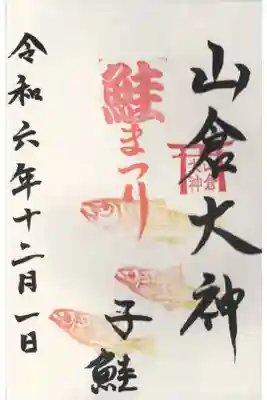 山倉大神
山倉
大神
鮭まつり
子鮭
令和六年十二月一日